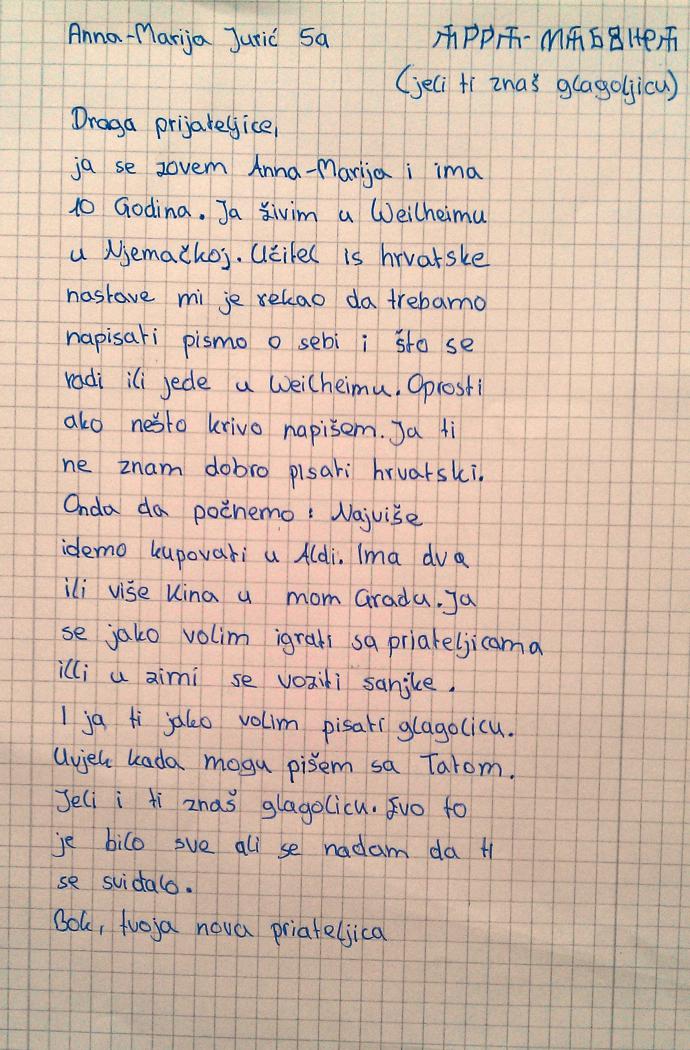 Anna-Marija Jurić 5a
ⰀⰐⰐⰀ-ⰏⰀⰓⰋⰌⰀ
(jeli ti znaš glagoljicu)
Draga prijateljice,
ja se zovem Anna-Marija i ima
10 Godina. Ja živim u Weilheimu
u Njemačkoj. Učitel is hrvatske
nastave mi je rekao da trebamo
napisati pismo o sebi i što se
radi ili jede u Weilheimu. Oprosti
ako nešto krivo napišem. Ja ti
ne znam dobro pisati hrvatski.
Onda da počnemo: Najviše
idemo kupovati u Aldi. Ima dva
ili više Kina u mom Gradu. Ja
se jako volim igrati sa priateljicama
illi u zimi se voziti sanjke.
I ja ti jako volim pisati glagolicu.
Uvjek kada mogu pišem sa Tatom.
Jeli i ti znaš glagolicu. Evo to
je bilo sve ali se nadam da ti
se svidalo.
Bok, tvoja nova priateljica